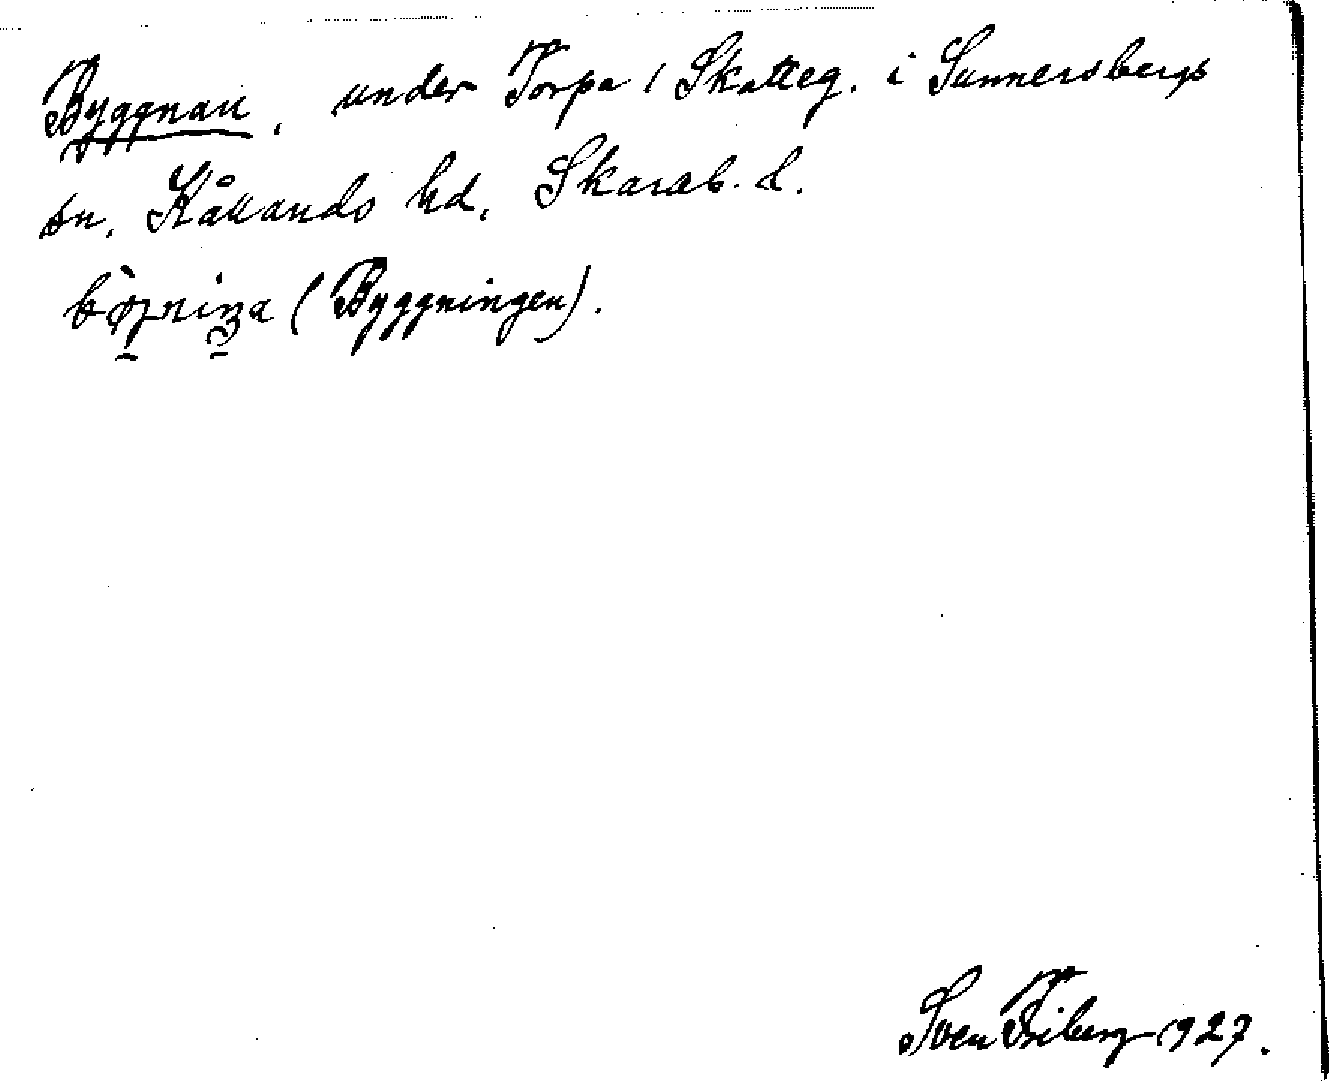 Byggnan, under Torpa 1 Skatteg. i Sunnersbergs
sn, Kållands hd, Skarab. l.
(Byggningen).
Sven Friberg 1927.